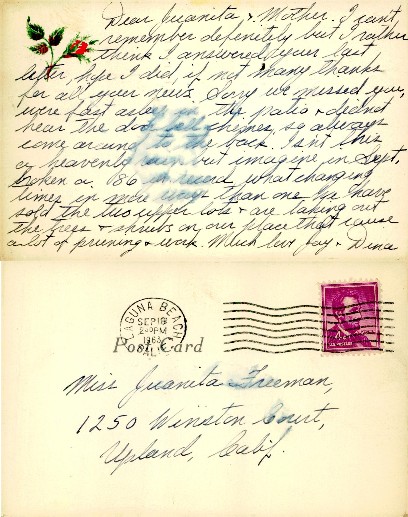 Dear Juanita & Mother. I can't
remember definitely but I rather
think I answered your last
letter, hope I did, if not many thanks
for all your news. Sorry we missed you,
were fast asleep on the patio & didn't
hear the door bell chemes, so always
come around to the back. Isn't this
a heavenly rain but imagine in Sept.
broken a 186 record what changing
times in more ways than one. We have
sold the two upper lots & are taking out
the trees & shrubs on our place that cause
a lot of pruning & work. Much love Jay & Dina
LAGUNA BEACH
SEP 18
2 PM
1963
CALIF.
Post Card
Miss Juanita Freeman,
1250 Winston Court,
Upland, Calif.